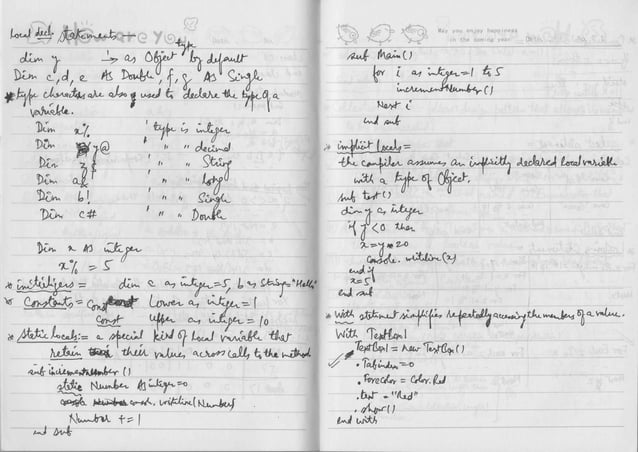 Local decl. statements —
dim y ' → as Object type by default
Dim c, d, e As Double, f, g As Single
* type characters are also used to declare the type of a
variable.
Dim x% ' type is integer
Dim y@ ' " " decimal
Dim z$ ' " " String
Dim a& ' " " long
Dim b! ' " " Single
Dim c# ' " " Double
Dim x As integer
x% = 5
* initializers = dim c as integer=5, b as String="Hello"
* Constants = Const Lower as integer = 1
Const upper as integer = 10
* Static locals:= a special kind of local variable that
retain their values across calls to the method
sub incrementnumber ()
static Number As integer=0
console.writeline(Number)
Number += 1
end sub
May you enjoy happiness
in the coming year
sub Main()
for i as integer=1 to 5
incrementNumber()
Next i
end sub
* implicit locals =
the compiler assumes an implicitly declared local variable
with a type of Object.
sub test()
dim y as integer
if y<0 then
x=y*20
Console.writeline(x)
end if
x=5
end sub
* With statement simplifies repeatedly accessing the members of a value.
With TextBox1
TextBox1 = new TextBox()
.Tabindex=0
.Forecolor = Color.Red
.text = "Red"
.show()
end with